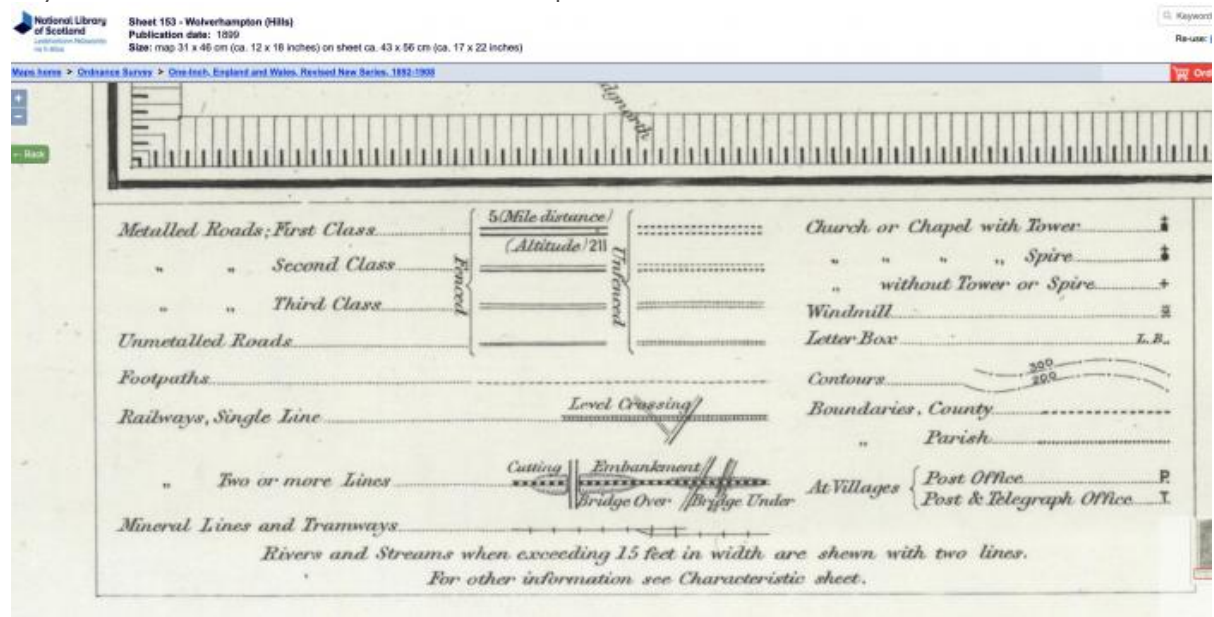 National Library
of Scotland
Sheet 153 - Wolverhampton (Hills)
Publication date: 1899
Size: map 31 x 46 cm (ca. 12 x 18 inches) on sheet ca. 43 x 56 cm (ca. 17 x 22 inches)
Keyword
Re-use:
Maps home > Ordnance Survey > One-Inch, England and Wales, Revised New Series, 1892-1908
Ord
+
−
← Back
dgnorth
Metalled Roads; First Class
" " Second Class
" " Third Class
Unmetalled Roads
Fenced
5 (Mile distance)
(Altitude) 211
Unfenced
Footpaths
Railways, Single Line
Level Crossing
" Two or more Lines
Cutting Embankment
Bridge Over Bridge Under
Mineral Lines and Tramways
Church or Chapel with Tower
" " " " Spire
" without Tower or Spire
Windmill
Letter Box L.B.
Contours 300
200
Boundaries, County
" Parish
At Villages
Post Office P.
Post & Telegraph Office T.
Rivers and Streams when exceeding 15 feet in width are shewn with two lines.
For other information see Characteristic sheet.